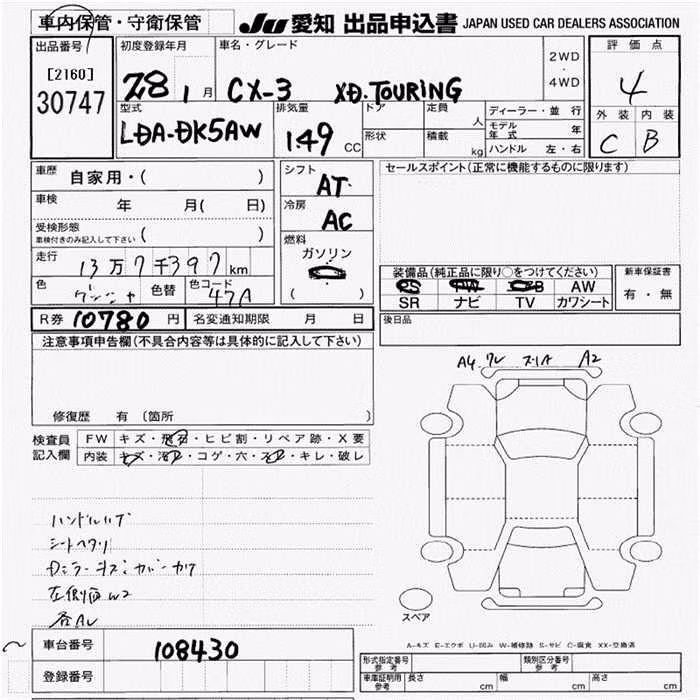 車内保管・守衛保管
JU 愛知 出品申込書 JAPAN USED CAR DEALERS ASSOCIATION
出品番号
[2160]
30747
初度登録年月
28 1月
車名・グレード
CX-3 XD.TOURING
2WD
・
4WD
評価点
4
外装 内装
C B
型式
LDA-DK5AW
排気量
1.49 CC
ドア
形状
定員 人
積載 kg
ディーラー・並行
モデル年式 年
ハンドル 左・右
車歴 自家用・( )
車検 年 月( 日)
受検形態
車検付きのみ記入して下さい ( )
走行 13万7千397km
色 色替 色コード 47A
シフト AT
冷房 AC
燃料
ガソリン
( )
セールスポイント(正常に機能するものに限ります)
装備品(純正品に限り○をつけてください)
PS PW AW
SR ナビ TV カワシート
新車保証書
有・無
R券 10780円 名変通知期限 月 日
後日品
注意事項申告欄(不具合内容等は具体的に記入して下さい)
修復歴 有 〔箇所 〕
A4 ワレ ズレA A2
検査員記入欄
FW キズ・飛石・ヒビ割・リペア跡・X要
内装 キズ・汚レ・コゲ・穴・スレ・キレ・破レ
ハンドルハゲ
シートヘタリ
左側面W2
各AU
スペア
A-キズ E-エクボ U-凹み W-補修跡 S-サビ C-腐食 XX-交換済
車台番号 108430
登録番号
形式指定番号 参考
類別区分番号 参考
車庫証明用 参考 長さ cm 幅 cm 高さ cm